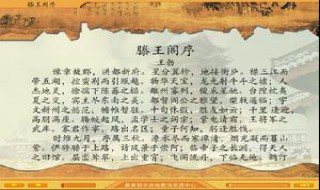 滕王阁序
滕王阁序
王勃
豫章故郡，洪都新府。星分翼轸，地接衡庐。襟三江而
带五湖，控蛮荆而引瓯越。物华天宝，龙光射牛斗之墟；人
杰地灵，徐孺下陈蕃之榻。雄州雾列，俊采星驰。台隍枕夷
夏之交，宾主尽东南之美。都督阎公之雅望，棨戟遥临；宇
文新州之懿范，襜帷暂驻。十旬休假，胜友如云；千里逢迎，
高朋满座。腾蛟起凤，孟学士之词宗；紫电清霜，王将军之
武库。家君作宰，路出名区；童子何知，躬逢胜饯。
时维九月，序属三秋。潦水尽而寒潭清，烟光凝而暮山
紫。俨骖騑于上路，访风景于崇阿；临帝子之长洲，得天人
之旧馆。层峦耸翠，上出重霄；飞阁流丹，下临无地。鹤汀